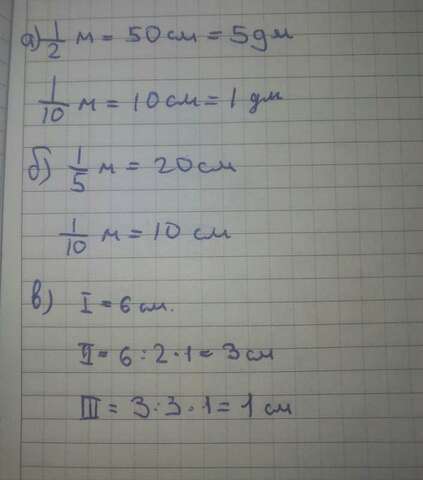 а) 1/2 м = 50 см = 5 дм
1/10 м = 10 см = 1 дм
б) 1/5 м = 20 см
1/10 м = 10 см
в) I = 6 см.
II = 6 : 2 · 1 = 3 см
III = 3 : 3 · 1 = 1 см